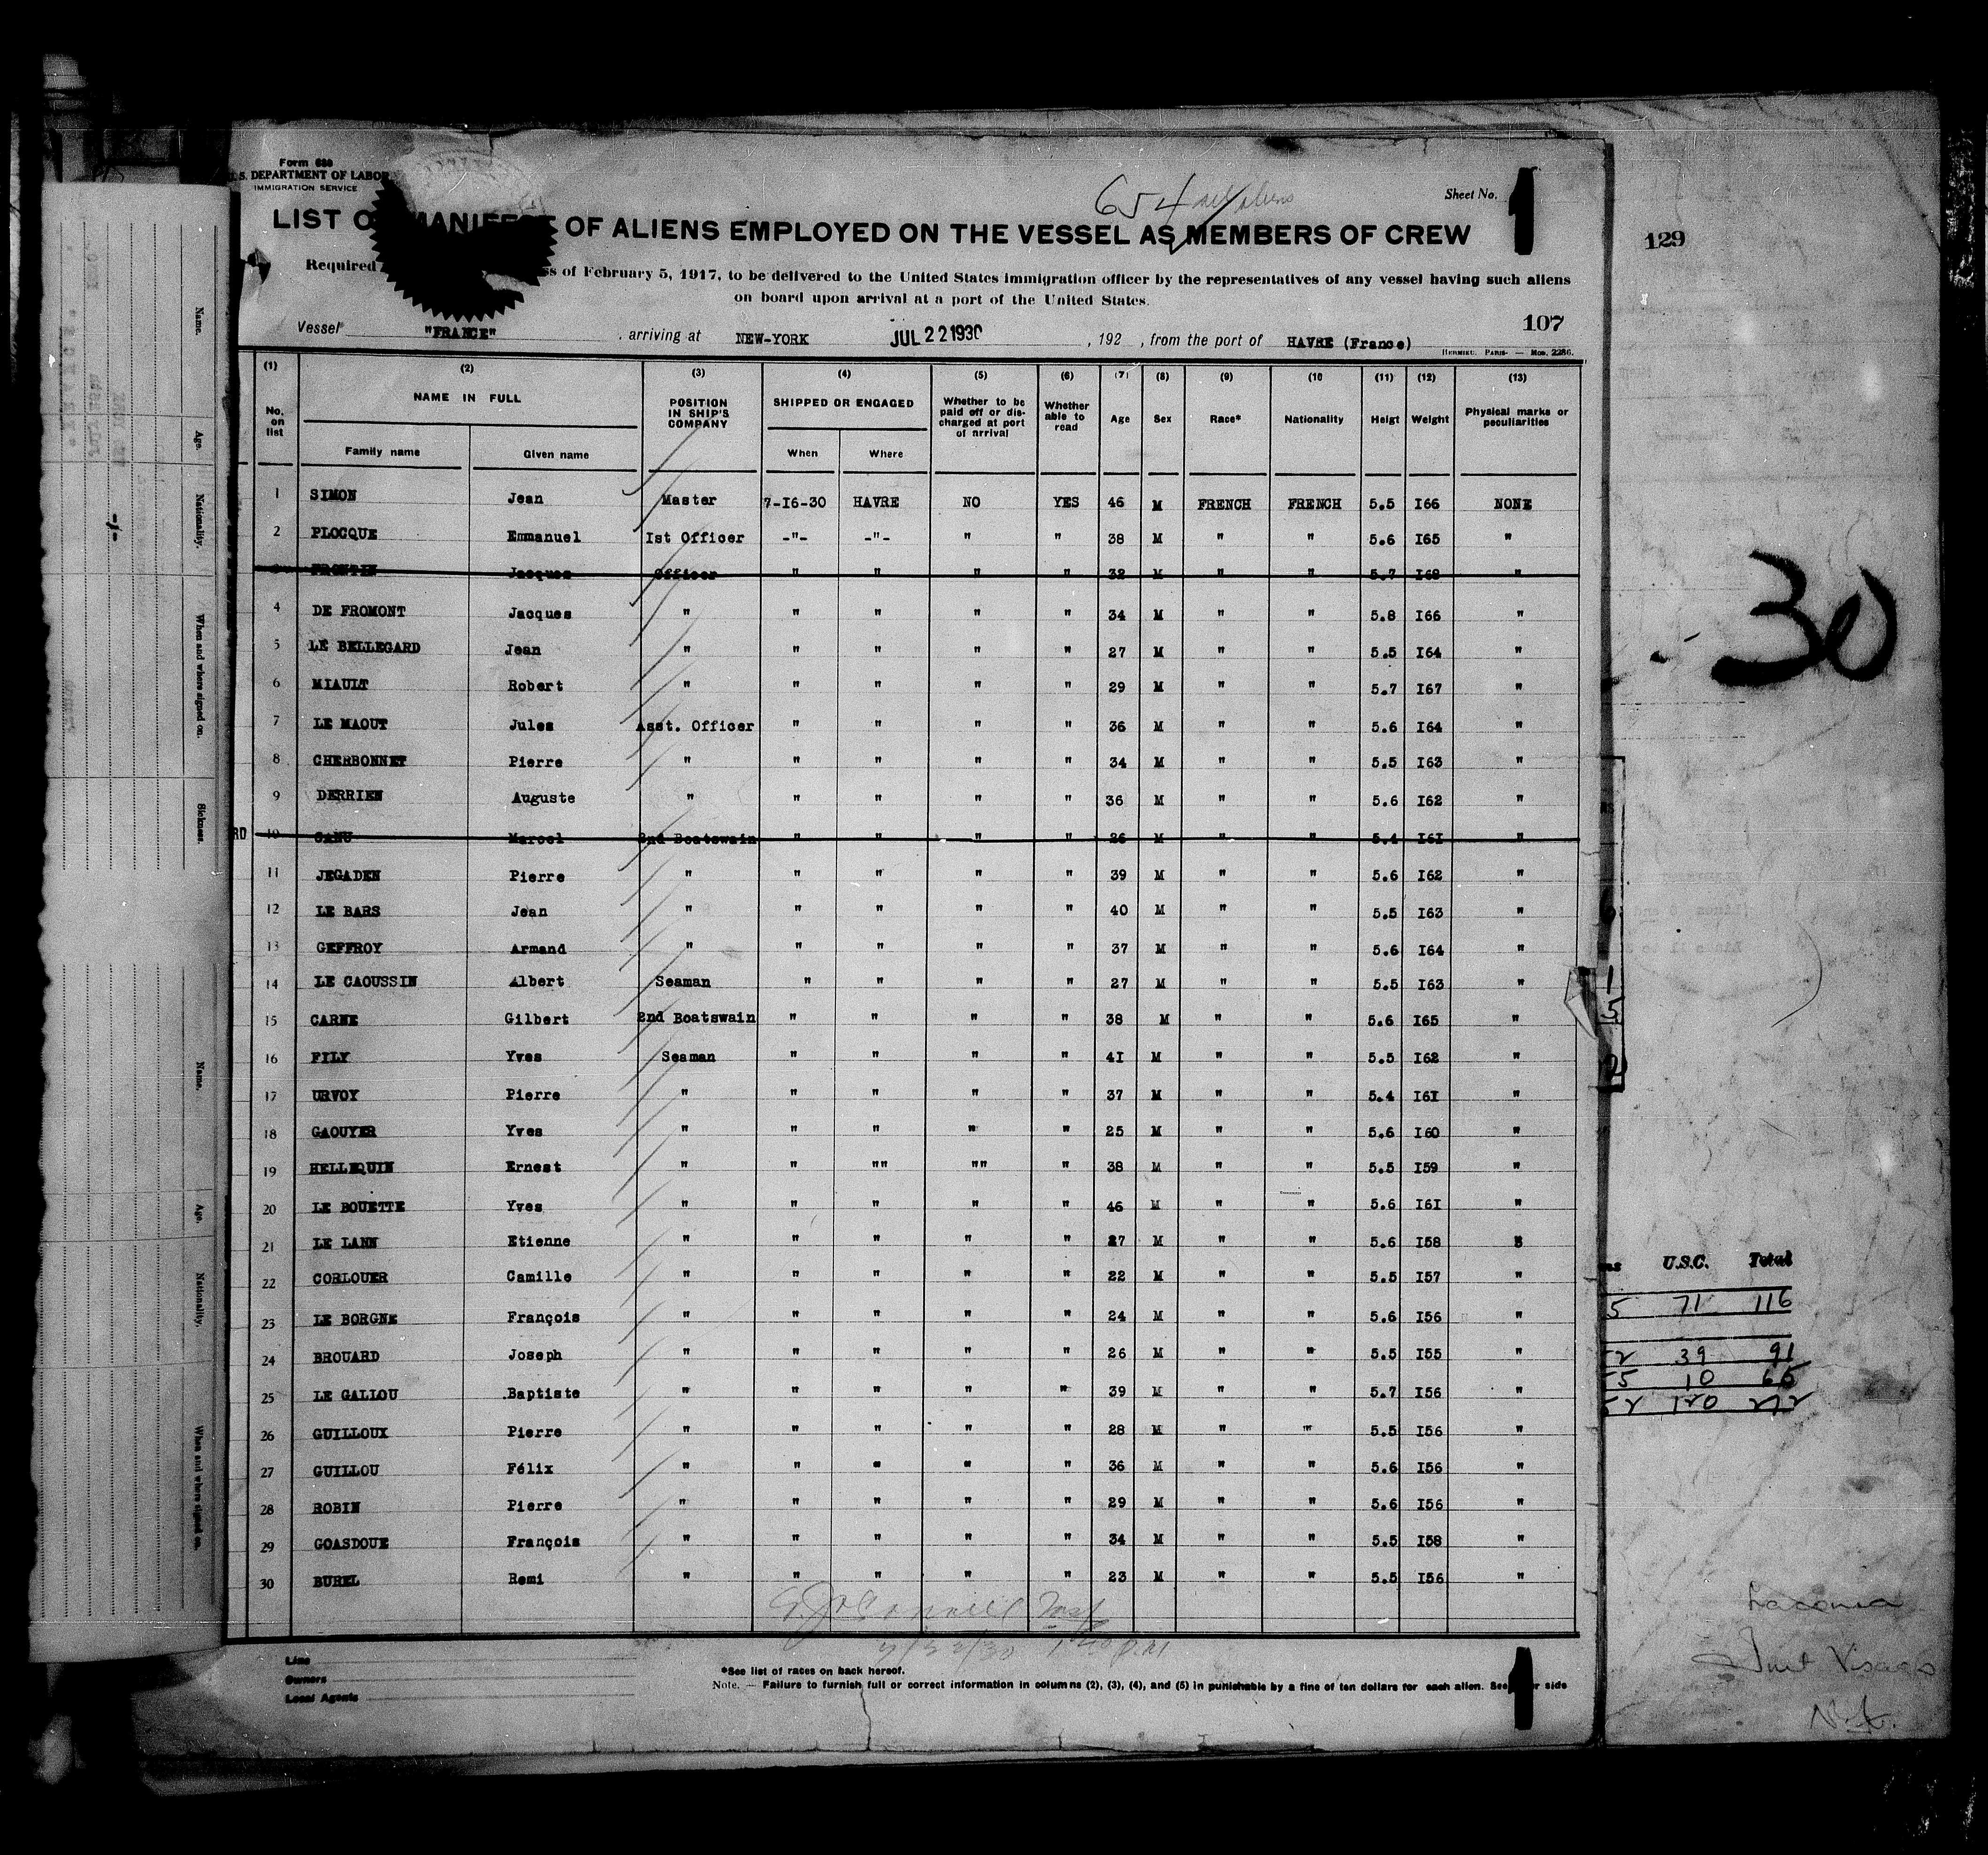 Form 680
U.S. DEPARTMENT OF LABOR
IMMIGRATION SERVICE
654 aliens
Sheet No. 1
LIST O MANIFEST OF ALIENS EMPLOYED ON THE VESSEL AS MEMBERS OF CREW
129
Required ss of February 5, 1917, to be delivered to the United States immigration officer by the representatives of any vessel having such aliens
on board upon arrival at a port of the United States.
107
Vessel "FRANCE" , arriving at NEW-YORK JUL 22 1930 , 192 , from the port of HAVRE (France)
HERMIEU. PARIS- — Mod. 2286.
(1) (2) (3) (4) (5) (6) (7) (8) (9) (10 (11) (12) (13)
No. on list NAME IN FULL POSITION IN SHIP'S COMPANY SHIPPED OR ENGAGED Whether to be paid off or discharged at port of arrival Whether able to read Age Sex Race* Nationality Heigt Weight Physical marks or peculiarities
Family name Given name When Where
1 SIMON Jean Master 7-I6-30 HAVRE NO YES 46 M FRENCH FRENCH 5.5 I66 NONE
2 PLOCQUE Emmanuel Ist Officer -"- -"- " " 38 M " " 5.6 I65 "
3 FRONTIN Jacques Officer " " " " 32 M " " 5.7 I68 "
4 DE FROMONT Jacques " " " " " 34 M " " 5.8 I66 "
5 LE BELLEGARD Jean " " " " " 27 M " " 5.5 I64 "
6 MIAULT Robert " " " " " 29 M " " 5.7 I67 "
7 LE MAOUT Jules Asst. Officer " " " " 36 M " " 5.6 I64 "
8 CHERBONNET Pierre " " " " " 34 M " " 5.5 I63 "
9 DERRIEN Auguste " " " " " 36 M " " 5.6 I62 "
RD 10 CANU Marcel 2nd Boatswain " " " " 26 M " " 5.4 I6I "
11 JEGADEN Pierre " " " " " 39 M " " 5.6 I62 "
12 LE BARS Jean " " " " " 40 M " " 5.5 I63 "
13 GEFFROY Armand " " " " " 37 M " " 5.6 I64 "
14 LE CAOUSSIN Albert Seaman " " " " 27 M " " 5.5 I63 "
15 CARNE Gilbert 2nd Boatswain " " " " 38 M " " 5.6 I65 "
16 FILY Yves Seaman " " " " 4I M " " 5.5 I62 "
17 URVOY Pierre " " " " " 37 M " " 5.4 I6I "
18 GAOUYER Yves " " " " " 25 M " " 5.6 I60 "
19 HELLEQUIN Ernest " " "" "" " 38 M " " 5.5 I59 "
20 LE BOUETTE Yves " " " " " 46 M " " 5.6 I6I "
21 LE LANN Etienne " " " " " 27 M " " 5.6 I58 "
22 CORLOUER Camille " " " " " 22 M " " 5.5 I57 "
23 LE BORGNE François " " " " " 24 M " " 5.6 I56 "
24 BROUARD Joseph " " " " " 26 M " " 5.5 I55 "
25 LE GALLOU Baptiste " " " " " 39 M " " 5.7 I56 "
26 GUILLOUX Pierre " " " " " 28 M " " 5.5 I56 "
27 GUILLOU Félix " " " " " 36 M " " 5.6 I56 "
28 ROBIN Pierre " " " " " 29 M " " 5.6 I56 "
29 GOASDOUE François " " " " " 34 M " " 5.5 I58 "
30 BUREL Remi " " " " " 23 M " " 5.5 I56 "
Line
Owners
Local Agents
*See list of races on back hereof.
Note. — Failure to furnish full or correct information in columns (2), (3), (4), and (5) in punishable by a fine of ten dollars for each alien. See r side
1
30
U.S.C. Total
5 71 116
39 91
5 10 65
120 272
Laconia
N.Y.
Name.
Age.
Nationality.
When and where signed on.
Sickness.
Name.
Age.
Nationality.
When and where signed on.
-1-